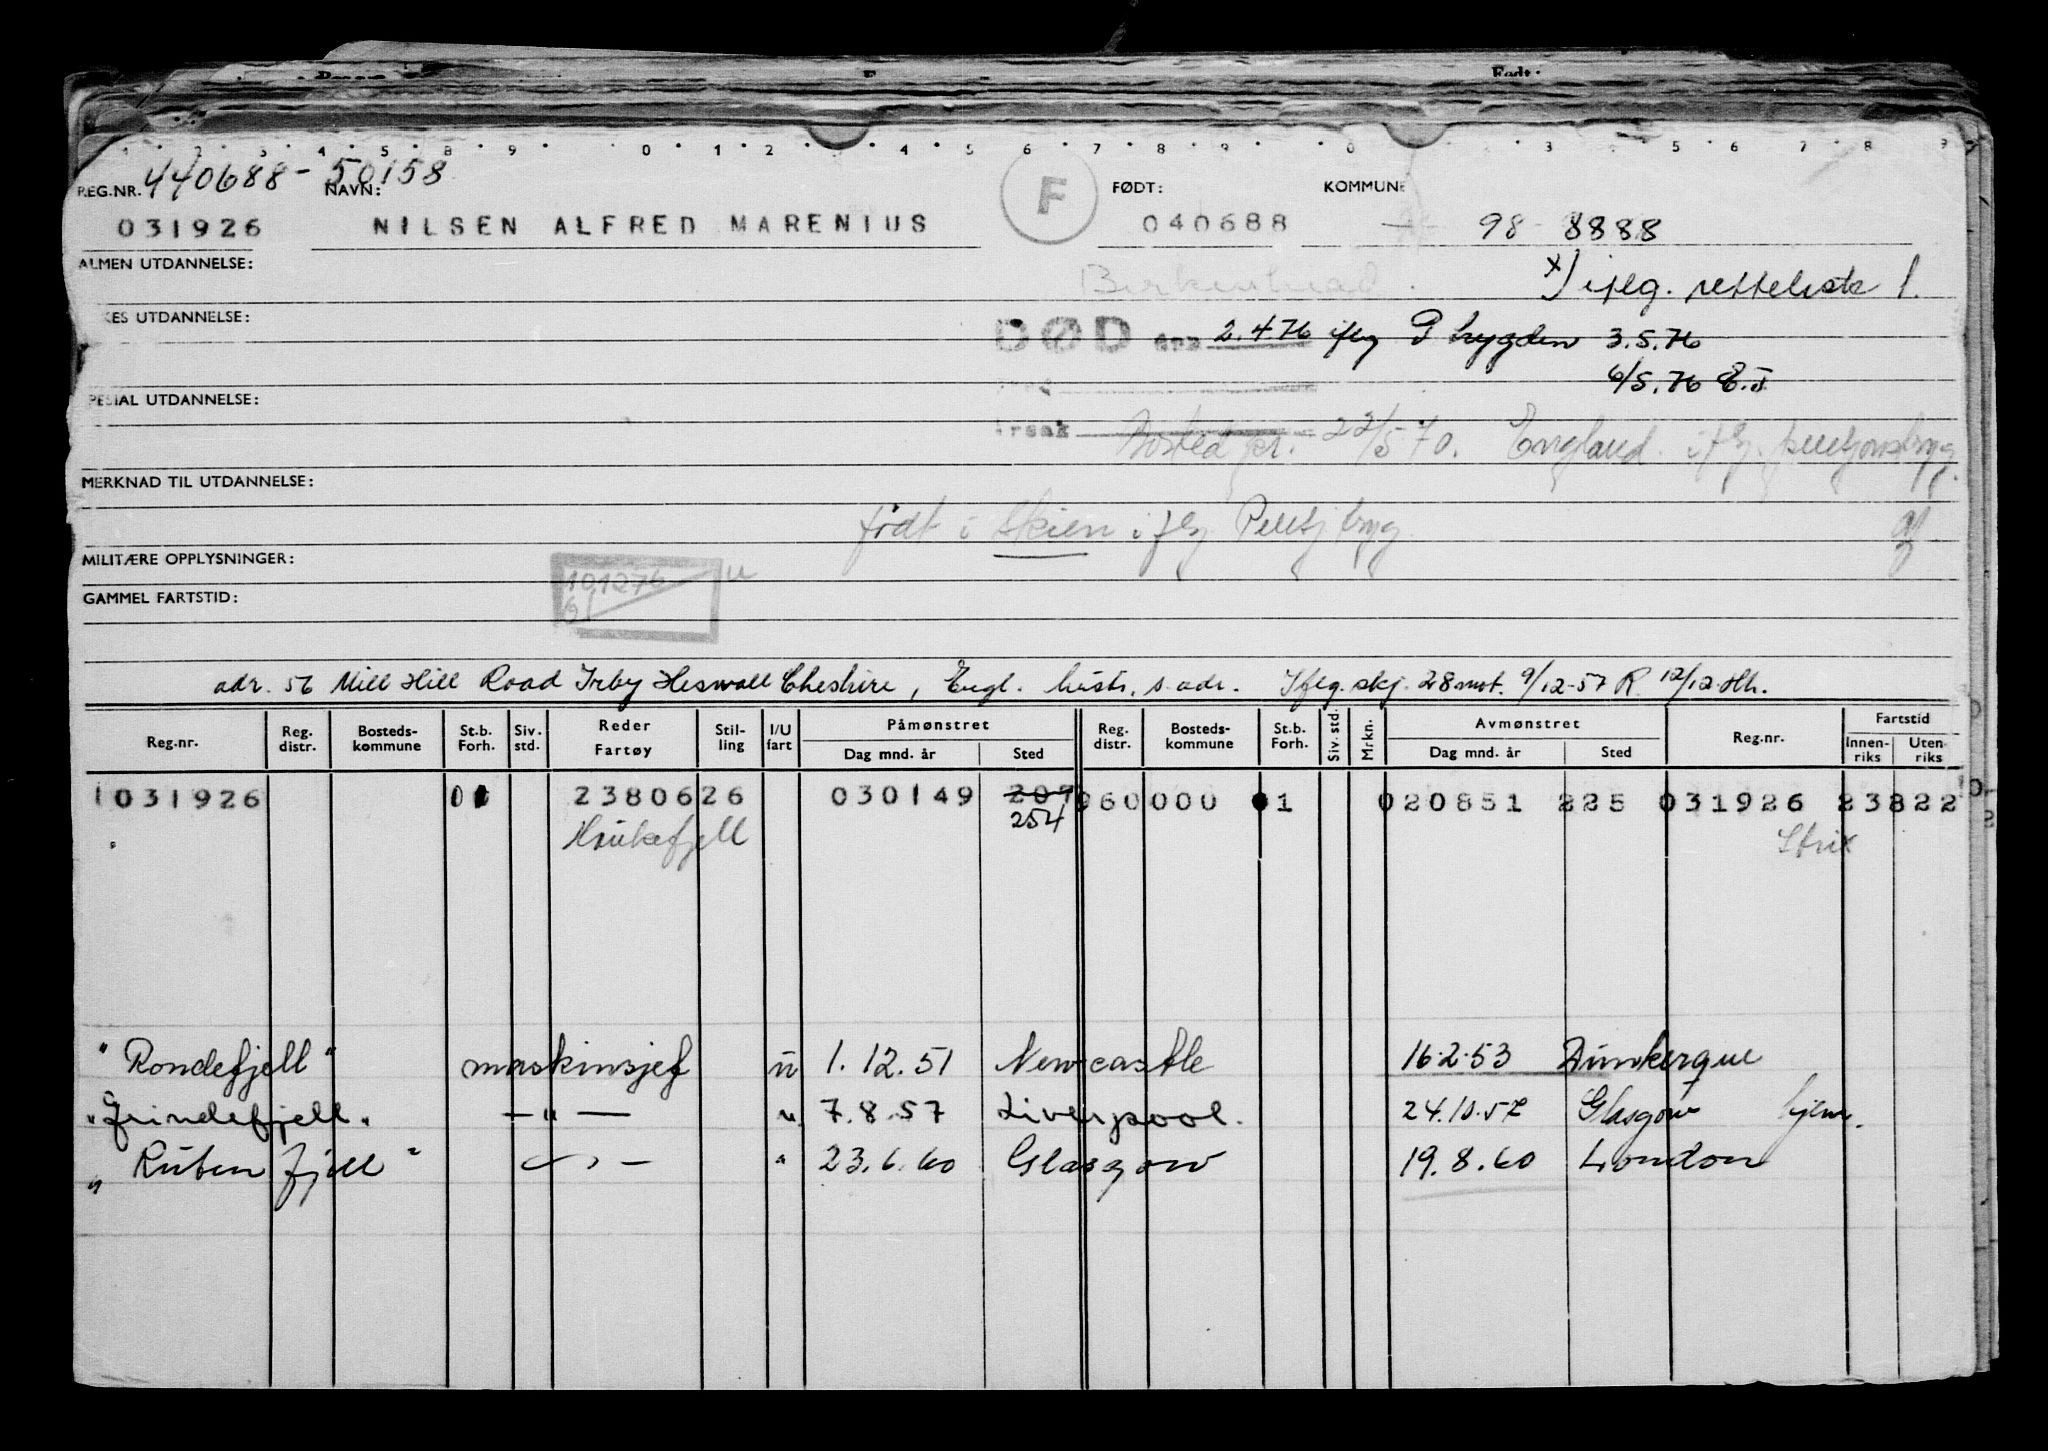 Født:
1 2 3 4 5 8 9 0 1 2 4 5 6 7 8 9 0 3 5 6 7 8 9
440688-50158
REG.NR. NAVN: F FØDT: KOMMUNE
031926 NILSEN ALFRED MARENIUS 040688 98-8888
ALMEN UTDANNELSE: x) iflg. retteliste 1.
Birkenhead
KES UTDANNELSE:
DØD den 2.4.76 iflg P trygden 3.5.76
6/5.76
PESIAL UTDANNELSE:
Årsak Bosted pr. 22/5 70. England iflg. pensjonstryg.
MERKNAD TIL UTDANNELSE:
født i Skien iflg Pensj tryg
MILITÆRE OPPLYSNINGER:
101276
GAMMEL FARTSTID:
adr. 56 Mill Hill Road Irby Heswall Cheshire, Engl. hustr. s. adr. Iflg. skj. 28 mot. 9/12-57 R. 12/12.
Reg.nr. Reg. distr. Bosteds-kommune St.b. Forh. Siv. std. Reder Fartøy Stil-ling I/U fart Påmønstret Dag mnd. år Sted Reg. distr. Bosteds-kommune St.b. Forh. Siv. std. Mrkn. Avmønstret Dag mnd. år Sted Reg.nr. Fartstid Innen-riks Uten-riks
1031926 2380626 030149 207 960000 1 020851 225 031926 23822
254
Haukefjell
"Rondefjell" maskinsjef u 1.12.51 Newcastle 16.2.53 Dunkerque
"Grindefjell" -"- " 7.8.57 Liverpool. 24.10.57 Glasgow hjem.
"Ruten fjell" " 23.6.60 Glasgow 19.8.60 London